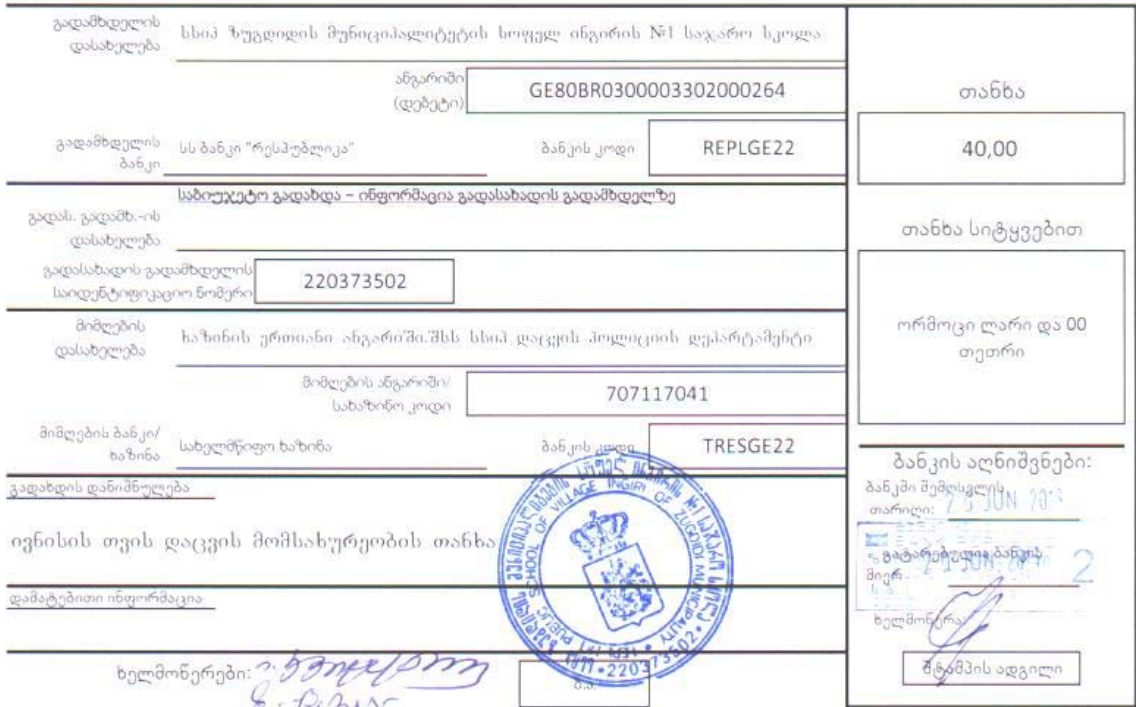 გადამხდელის დასახელება
სსიპ ზუგდიდის მუნიციპალიტეტის სოფელ ინგირის №1 საჯარო სკოლა
ანგარიში (დებეტი)
GE80BR0300003302000264
გადამხდელის ბანკი
სს ბანკი "რესპუბლიკა"
ბანკის კოდი
REPLGE22
საბიუჯეტო გადახდა – ინფორმაცია გადასახადის გადამხდელზე
გადას. გადამხ.-ის დასახელება
გადასახადის გადამხდელის საიდენტიფიკაციო ნომერი
220373502
მიმღების დასახელება
ხაზინის ერთიანი ანგარიში.შსს სსიპ დაცვის პოლიციის დეპარტამენტი
მიმღების ანგარიში/ სახაზინო კოდი
707117041
მიმღების ბანკი/ ხაზინა
სახელმწიფო ხაზინა
ბანკის კოდი
TRESGE22
გადახდის დანიშნულება
ივნისის თვის დაცვის მომსახურეობის თანხა
დამატებითი ინფორმაცია
ხელმოწერები:
ბ.ა.
თანხა
40,00
თანხა სიტყვებით
ორმოცი ლარი და 00
თეთრი
ბანკის აღნიშვნები:
ბანკში შემოსვლის
თარიღი:
JUN
გატარებულია ბანკის
მიერ
2
ხელმოწერა:
შტამპის ადგილი
SCHOOL OF VILLAGE INGIRI OF ZUGDIDI MUNICIPALITY
PUBLIC
220373502